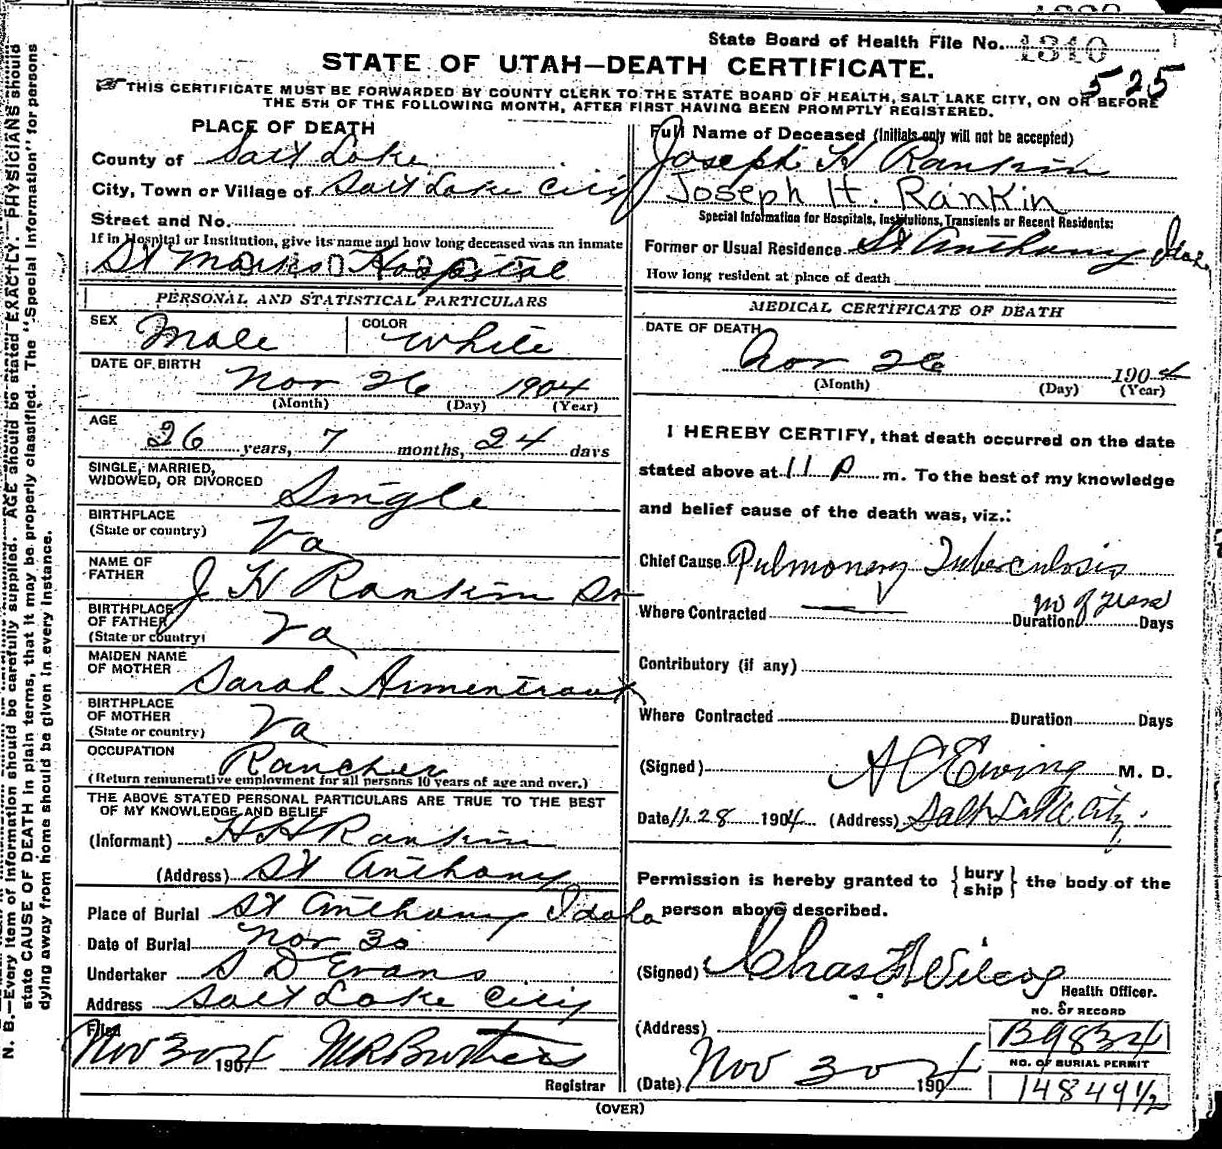 State Board of Health File No. 1310
525
STATE OF UTAH—DEATH CERTIFICATE.
THIS CERTIFICATE MUST BE FORWARDED BY COUNTY CLERK TO THE STATE BOARD OF HEALTH, SALT LAKE CITY, ON OR BEFORE
THE 5TH OF THE FOLLOWING MONTH, AFTER FIRST HAVING BEEN PROMPTLY REGISTERED.
N. B.—Every item of information should be carefully supplied. AGE should be stated EXACTLY. PHYSICIANS should
state CAUSE OF DEATH in plain terms, that it may be properly classified. The "Special Information" for persons
dying away from home should be given in every instance.
PLACE OF DEATH
County of Salt Lake
City, Town or Village of Salt Lake City
Street and No.
If in Hospital or Institution, give its name and how long deceased was an inmate
St Marks Hospital
PERSONAL AND STATISTICAL PARTICULARS
SEX Male COLOR White
DATE OF BIRTH Nov 26 1904
(Month) (Day) (Year)
AGE 26 years, 7 months, 24 days
SINGLE, MARRIED,
WIDOWED, OR DIVORCED Single
BIRTHPLACE
(State or country) Va
NAME OF
FATHER J H Rankin Sr
BIRTHPLACE
OF FATHER
(State or country) Va
MAIDEN NAME
OF MOTHER Sarah Armentrout
BIRTHPLACE
OF MOTHER
(State or country) Va
OCCUPATION Rancher
(Return remunerative employment for all persons 10 years of age and over.)
THE ABOVE STATED PERSONAL PARTICULARS ARE TRUE TO THE BEST
OF MY KNOWLEDGE AND BELIEF
(Informant) H H Rankin
(Address) St Anthony
Place of Burial St Anthony Idaho
Date of Burial Nov 30
Undertaker S D Evans
Address Salt Lake City
Filed
Nov 30 1904
Registrar
Full Name of Deceased (Initials only will not be accepted)
Joseph H Rankin
Joseph H. Rankin
Special Information for Hospitals, Institutions, Transients or Recent Residents:
Former or Usual Residence St Anthony Idaho
How long resident at place of death
MEDICAL CERTIFICATE OF DEATH
DATE OF DEATH
Nov 26 1904
(Month) (Day) (Year)
I HEREBY CERTIFY, that death occurred on the date
stated above at 11 P m. To the best of my knowledge
and belief cause of the death was, viz.:
Chief Cause Pulmonary Tuberculosis
Where Contracted — Duration no of years Days
Contributory (if any)
Where Contracted Duration Days
(Signed) A C Ewing M. D.
Date 11.28 1904 (Address) Salt Lake City
Permission is hereby granted to {bury ship} the body of the
person above described.
(Signed) Chas F Wilcox
Health Officer.
(Address)
(Date) Nov 30 1904
NO. OF RECORD
B9834
NO. OF BURIAL PERMIT
14849 1/2
(OVER)